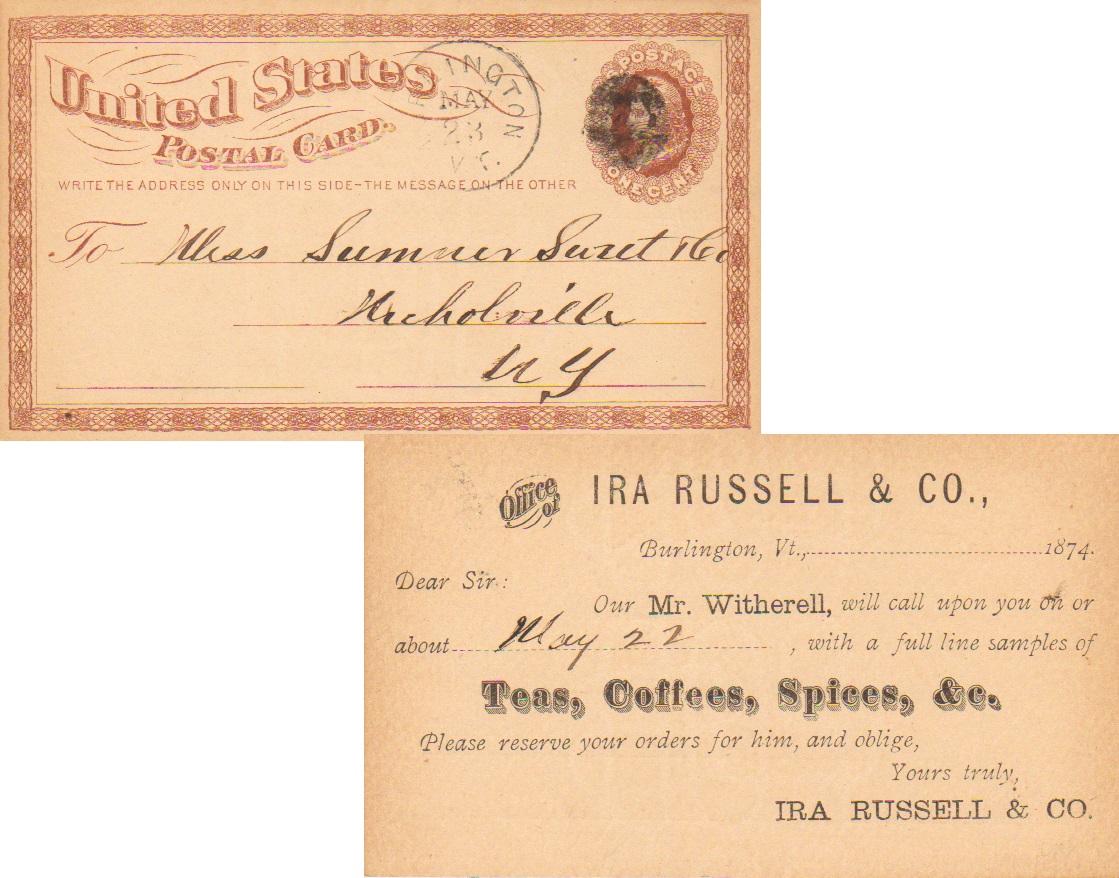 United States
POSTAL CARD.
WRITE THE ADDRESS ONLY ON THIS SIDE-THE MESSAGE ON THE OTHER
POSTAGE
ONE CENT
INGTON
MAY
23
VT.
To Mess Sumner Sweet & Co
Nicholville
N Y
Office of IRA RUSSELL & CO.,
Burlington, Vt., 1874.
Dear Sir:
Our Mr. Witherell, will call upon you on or
about May 22, with a full line samples of
Teas, Coffees, Spices, &c.
Please reserve your orders for him, and oblige,
Yours truly,
IRA RUSSELL & CO.